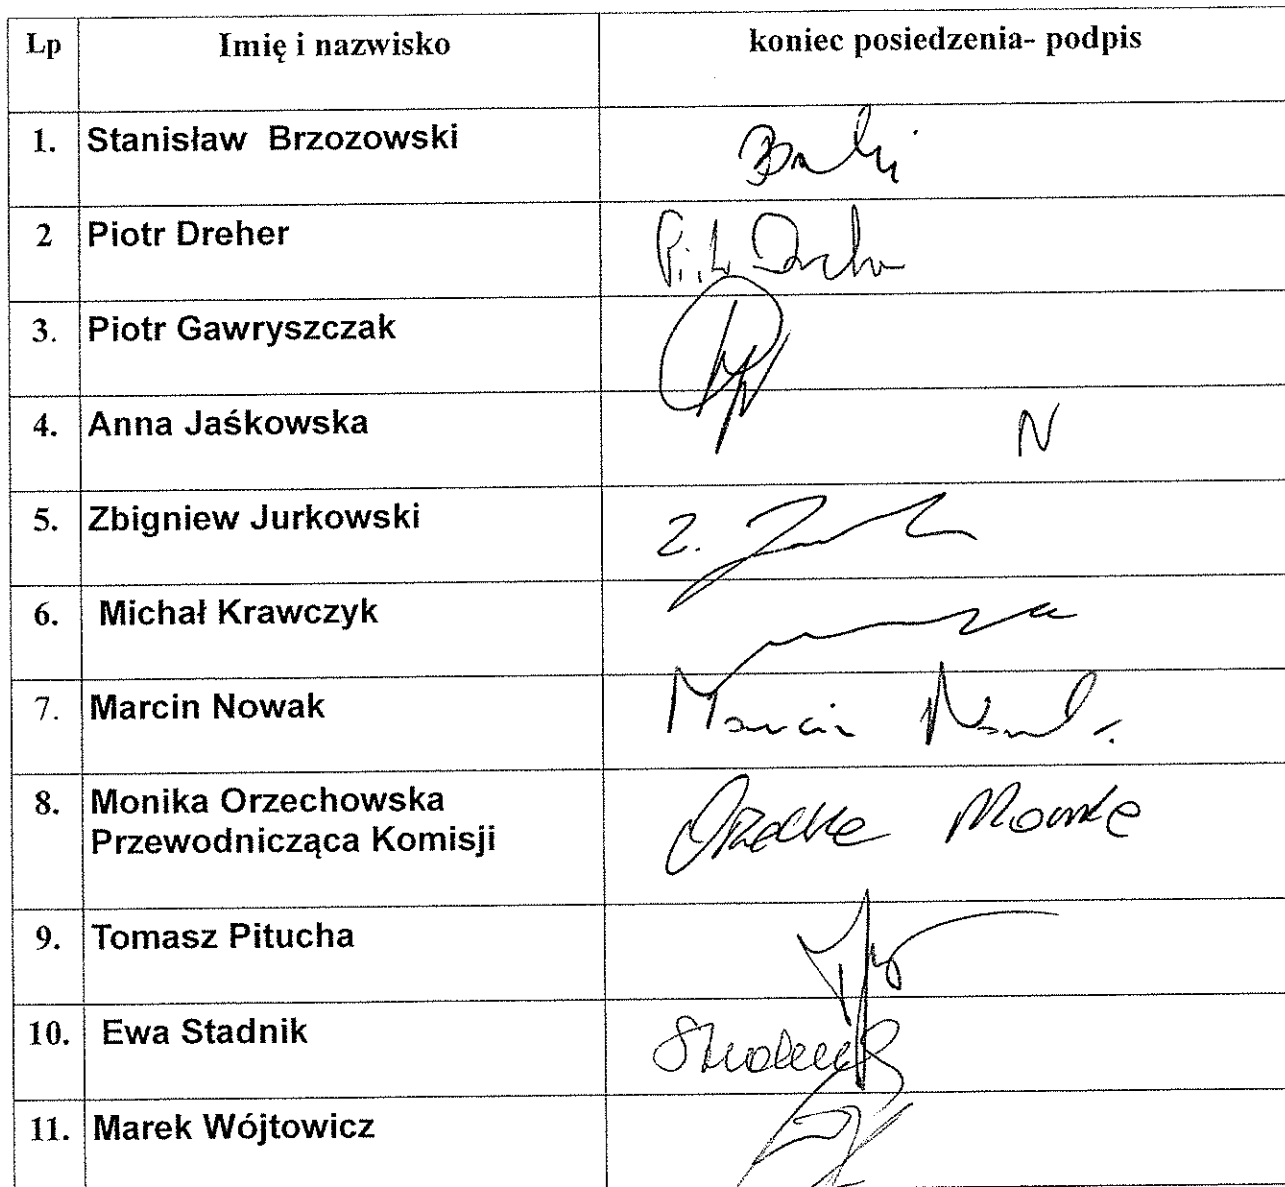 Lp Imię i nazwisko koniec posiedzenia- podpis
1. Stanisław Brzozowski
2 Piotr Dreher
3. Piotr Gawryszczak
4. Anna Jaśkowska N
5. Zbigniew Jurkowski Z.
6. Michał Krawczyk
7. Marcin Nowak Marcin Nowak
8. Monika Orzechowska
Przewodnicząca Komisji
9. Tomasz Pitucha
10. Ewa Stadnik
11. Marek Wójtowicz